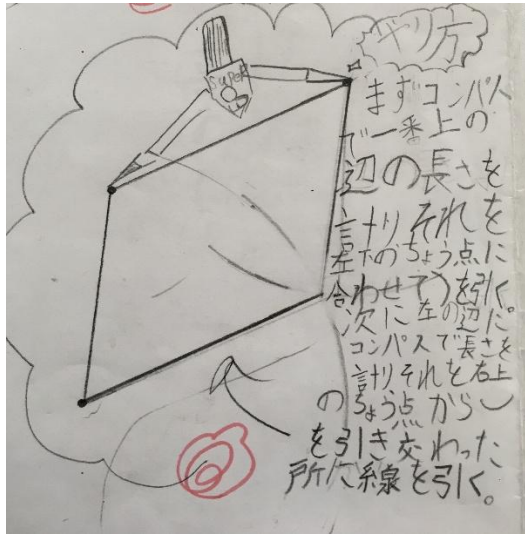 やり方
super
まずコンパス
で一番上の
辺の長さを
計りそれを
左下のちょう点に
合わせて⌒を引く。
次に左の辺に
コンパスで長さを
計りそれを右上
のちょう点から⌣
を引き交わった
所に線を引く。